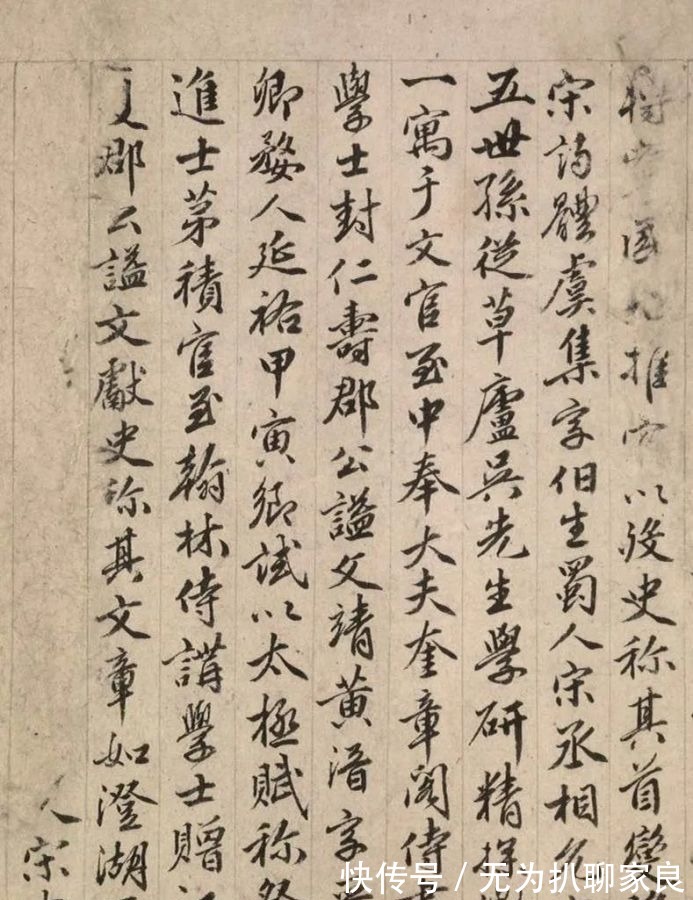 推以後史称其首變
宋詞體虞集字伯生蜀人宋丞相允
五世孫從草廬吳先生學研精探
一寓于文官至中奉大夫奎章閣侍書
學士封仁壽郡公謚文靖黃溍字晉
卿婺人延祐甲寅鄉試以太極賦称
進士茅積官至翰林侍講學士贈
郡公謚文獻史称其文章如澄湖
人宋
快传号/无为扒聊家良